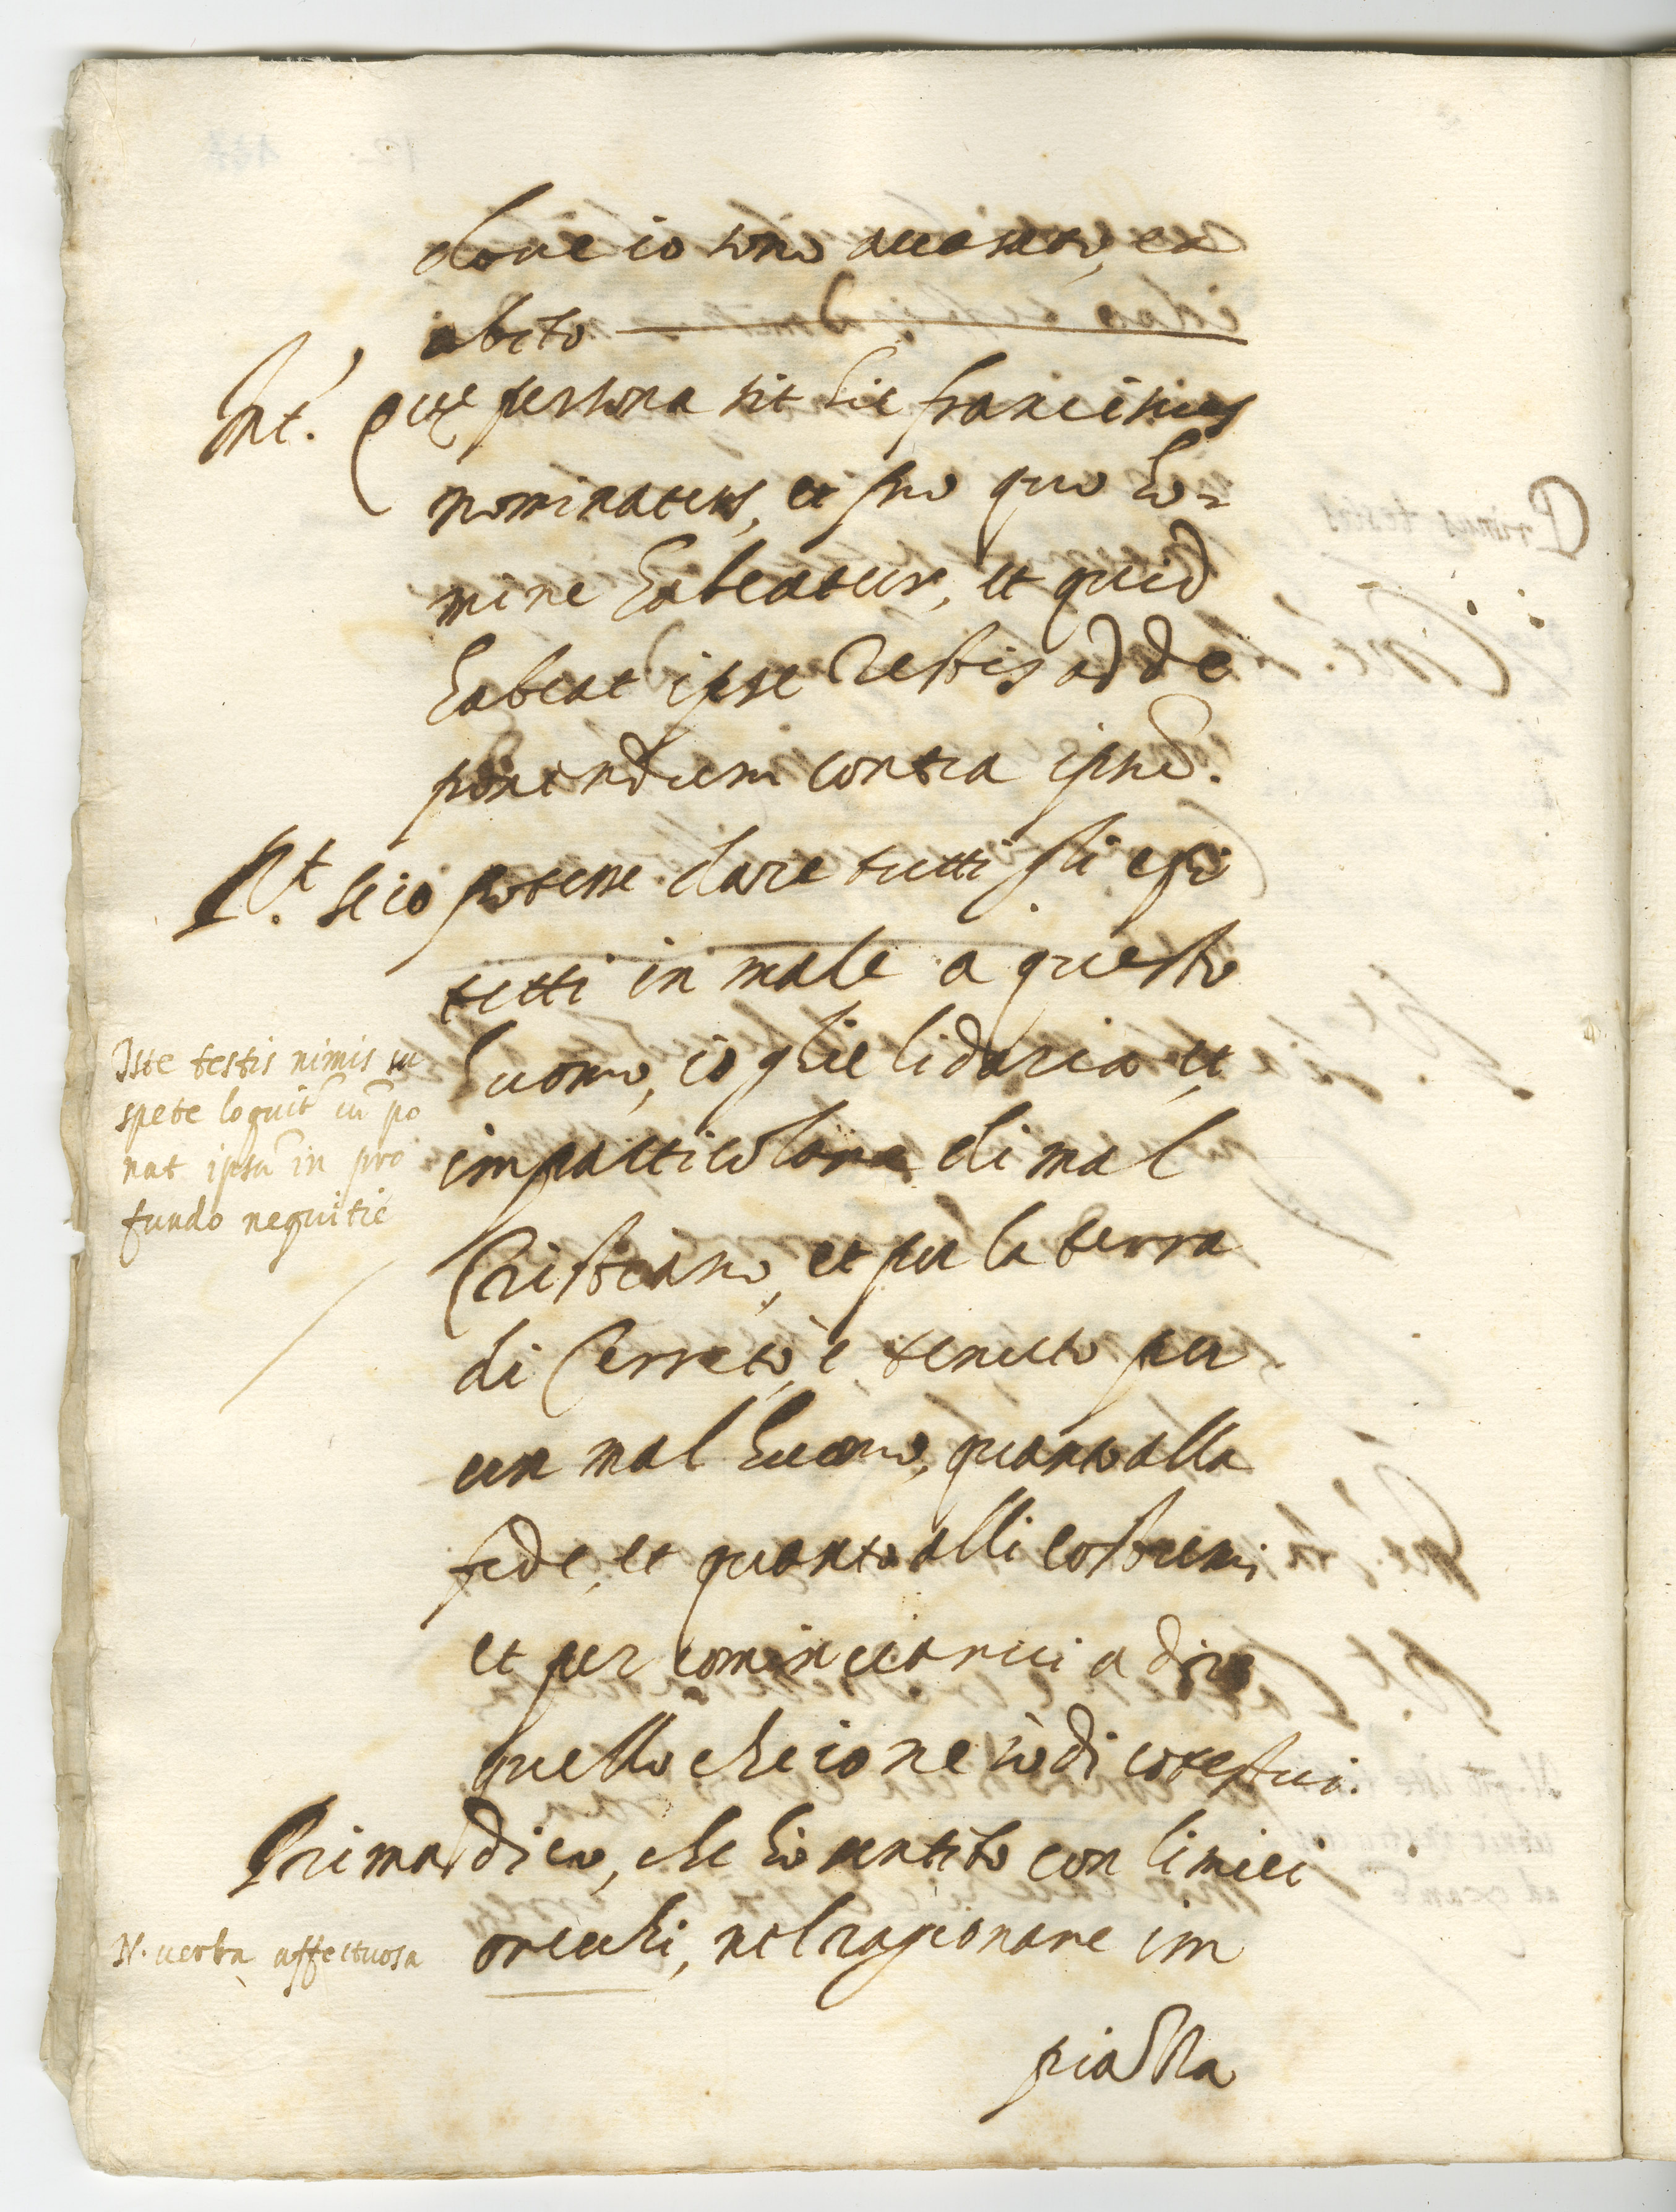 doue io sono accasato, et
abito
Int. Que persona sit hic franciscus
nominatus, et pro quo ho=
mine habeatur, et quid
habeat ipse Testis ad de
ponendum contra ipsū.
Rt. se io potesse dare tutti gli epi
tetti in male a questo
huomo, io glie li daria et
impatticolare di mal
Cristiano, et per la terra
di Cerreto, è tenuto per
un mal huomo, quanto alla
fede, et quanto alli costumi
et per cominciarui a dire
quello che io ne sò di cotestui.
Prima dico, che hò sentito con li miei
orecchi, nel ragionare im
piastra
Iste testis nimis su
spete loquit cū po
nat ipsū in pro
fundo nequitie
N. uerba affectuosa